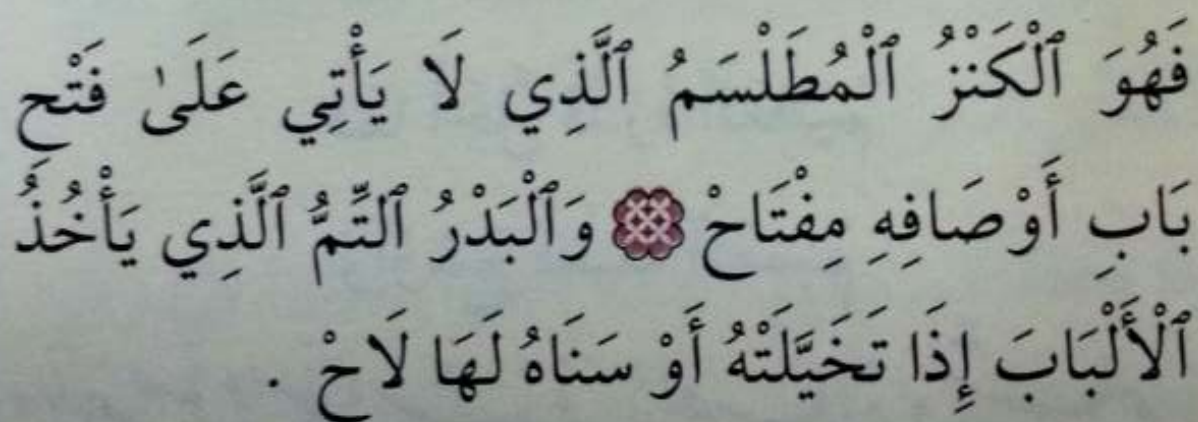 فَهُوَ ٱلْكَنْزُ ٱلْمُطَلْسَمُ ٱلَّذِي لَا يَأْتِي عَلَىٰ فَتْحِ
بَابِ أَوْصَافِهِ مِفْتَاحْ وَٱلْبَدْرُ ٱلتِّمُّ ٱلَّذِي يَأْخُذُ
ٱلْأَلْبَابَ إِذَا تَخَيَّلَتْهُ أَوْ سَنَاهُ لَهَا لَاحْ .